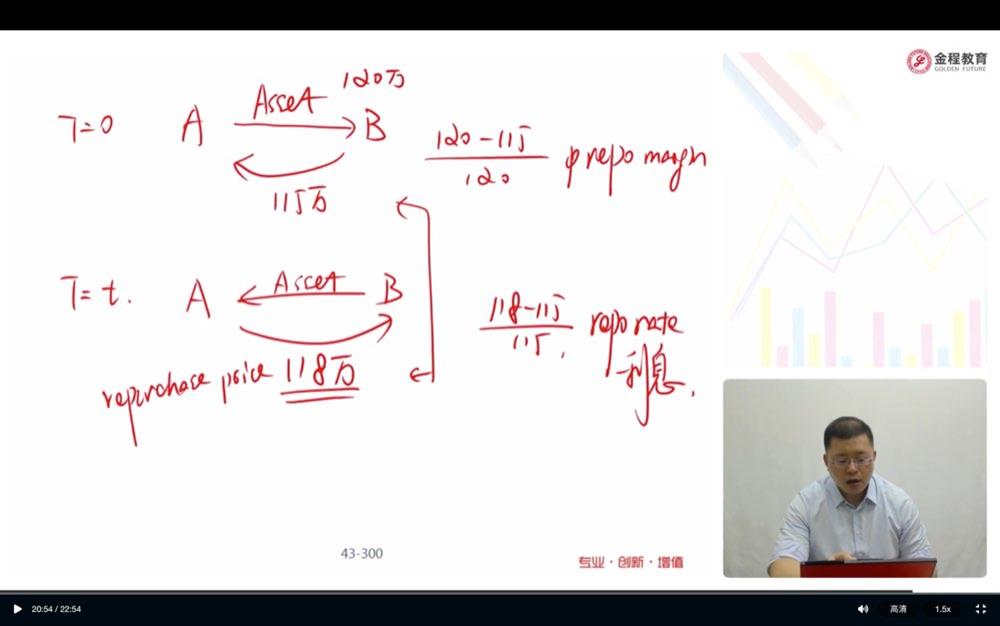 金程教育
GOLDEN FUTURE
T=0 A Asset 120万 B
115万
120-115
120
repo margin
T=t. A Asset B
repurchase price 118万
118-115
115.
repo rate
利息.
43-300
专业·创新·增值
20:54 / 22:54
高清
1.5x